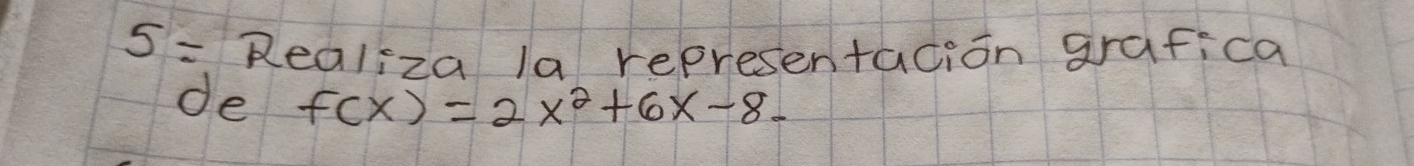 5= Realiza la representación grafica
de f(x) = 2x²+6x-8.